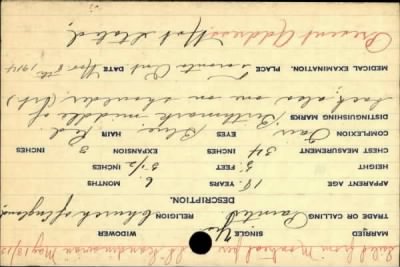 Sailed from Montreal per S.S. Scandinavian May 18/15
MARRIED SINGLE Yes WIDOWER
TRADE OR CALLING Painter RELIGION Church of England
DESCRIPTION.
APPARENT AGE 18 YEARS 6 MONTHS
HEIGHT 5 FEET 5 1/2 INCHES
CHEST MEASUREMENT 34 EXPANSION 3 INCHES
COMPLEXION Fair EYES Blue HAIR Red
DISTINGUISHING MARKS Birthmark middle of
back, also one on shoulder,
MEDICAL EXAMINATION. PLACE Toronto Ont DATE
Present Address, Not Stated,